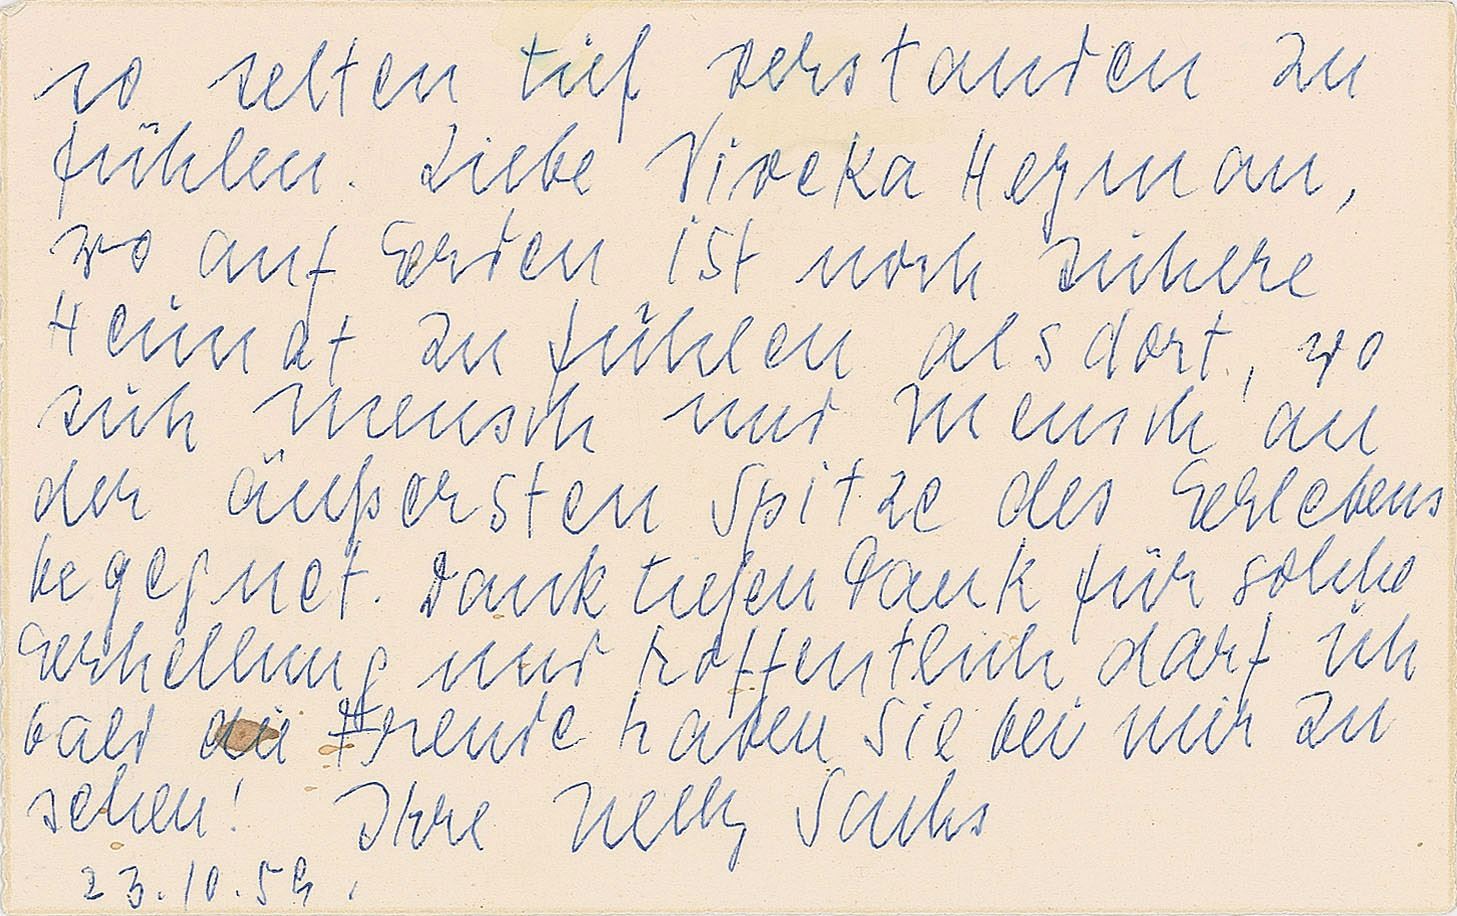 so selten tief verstanden zu
fühlen. Liebe Viveka Heyman,
wo auf Erden ist noch sichere
Heimat zu fühlen als dort, wo
sich Mensch und Mensch an
der äußersten Spitze des Erlebens
begegnet. Dank tiefen Dank für solche
Erhellung und hoffentlich darf ich
bald die Freude haben Sie bei mir zu
sehen! Ihre Nelly Sachs
23.10.59.